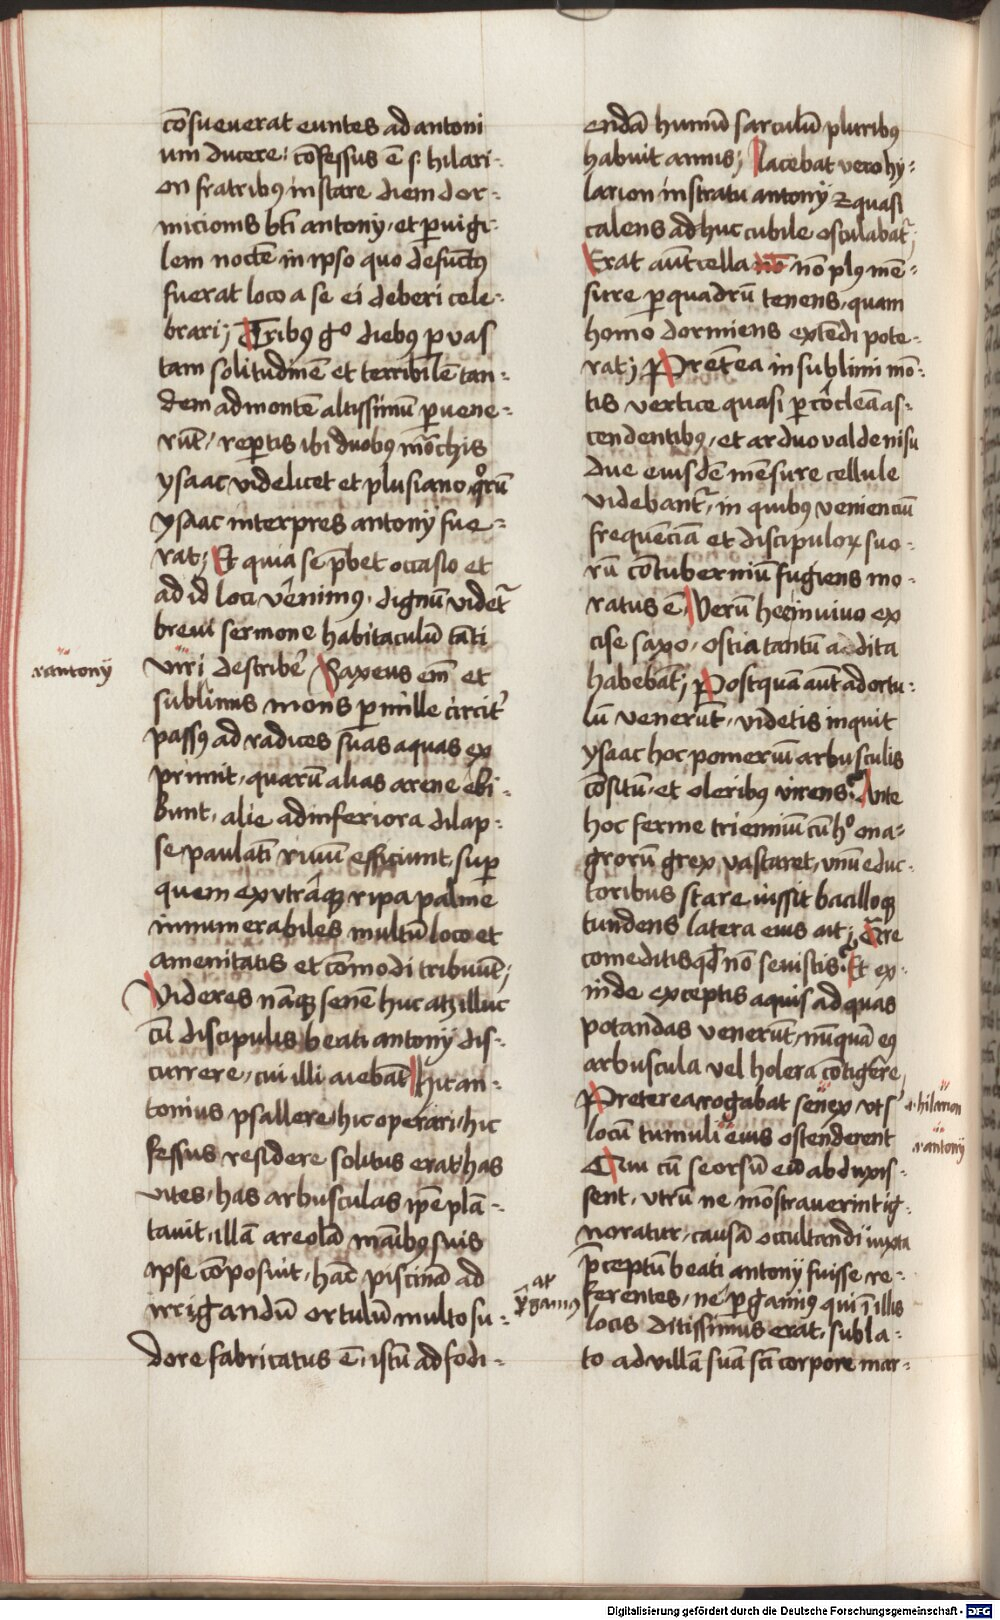 cōsueuerat euntes ad antoni
um ducere: cōfessus ē s. hilari-
on fratribꝰ instare diem dor-
micionis bt̄i antonÿ, et ꝑuigi-
lem noctē in ipso quo defunctꝰ
fuerat loco a se ei deberi cele-
brari; Tribꝰ gº diebꝰ ꝑ vas
tam solitudinē et terribilē tan-
dem ad montē altissimū ꝑuene-
rūt, reꝑtis ibi duobꝰ mōchis
ysaac videlicet et plusiano, qͦrū
ysaac interpres antonÿ fue-
rat; Et quia se p̄bet occasio et
ad id loci venimꝰ. dignū videtᷣ
breui sermone habitaculū tāti
viri describe᷑ Saxeus em̄ et
sublimis mons ꝑ mille circit᷑
passꝰ ad radices suas aquas ex
primit, quarū alias arene ebi-
bunt, alie ad inferiora dilap-
se paulati᷑ riuū efficiunt, suꝑ
quem ex vtráqꝫ ripa palme
innumerabiles multū loco et
amenitatis et cōmodi tribuūt;
Videres nāqꝫ senē huc atqꝫ illuc
cū discipulis beati antonÿ dis-
currere, cui illi aiebāt Hic an-
tonius psallere, hic operari, hic
fessus residere solitus erat, has
vites, has arbusculas ip̄e plā-
tauit, illā areolā māibꝰ suis
ipse cōposuit, hāc piscinā ad
irrigandū ortulū multo su-
dore fabricatus ē, istū ad fodi-
.s. antonÿ
endā humū sarculū pluribꝰ
habuit annis; Iacebat vero hy-
larion in stratu antonÿ & quasi
calens adhuc cubile osculabat᷑;
Erat aūt cella nō nō plꝰ mē-
sure ꝑ quadrū tenens, quam
homo dormiens extēdi pote-
rat; Pret᷑ea in sublimi mō-
tis vertice quasi ꝑ cócleā as-
cendentibꝰ, et arduo valde nisu
due eiusdē mēsure cellule
videbant᷑, in quibꝰ venienciū
frequēciā et discipuloꝝ suo-
rū cōtuberniū fugiens mo-
ratus ē, Verū hec in viuo ex
cise saxo, ostia tantū addita
habebāt; Postquā aūt ad ortu-
lū venerūt, videtis inquit
ysaac hoc pomeriū arbusculis
cōsitū, et oleribꝰ virens? Ante
hoc ferme trienniū cū hº ona-
grorū grex vastaret, vnū educ-
toribus stare iussit bacilloqꝫ
tundens latera eius ait; Qre
comeditis qd̄ nō seuistis? Et ex-
inde exceptis aquis ad quas
potandas venerūt, nūquā eꝰ
arbuscula vel holera cōtigere,
Preterea rogabat senex vt s᷑
locū tumuli eius ostenderent
Qui cū seorsū eū abduxis-
sent, vtrū ne mōstrauerint ig-
noratur, causā occultandi iuxta
p̄ceptū beati antonÿ fuisse re-
ferentes, ne ꝑgamiꝰ qui ī illis
locis ditissimus erat, subla-
to ad villā suā sc̄i corpore mar-
.s. hilarion
.s. antonÿ
aꝶ
ꝑgamiꝰ
Digitalisierung gefördert durch die Deutsche Forschungsgemeinschaft - DFG